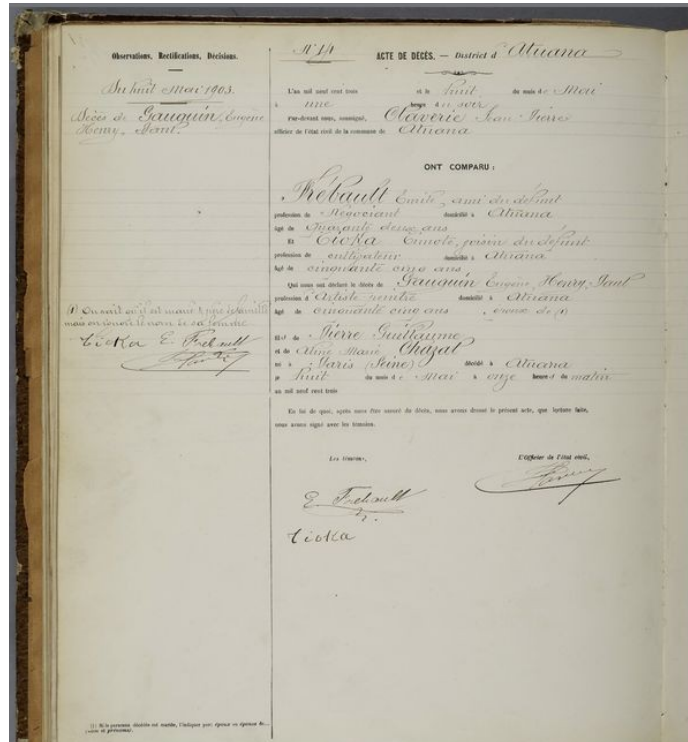 Observations, Rectifications, Décisions.
Du huit Mai 1903.
Décès de Gauguin, Eugène
Henry, Paul.
(1) On sait qu'il est marié & père de famille
mais on ignore le nom de sa
Tioka E. Frébault
(1) Si la personne décédée est mariée, l'indiquer par: époux ou épouse de...
(nom et prénoms).
N° 14 ACTE DE DÉCÈS. — District d'Atuana
L'an mil neuf cent trois et le huit du mois de Mai
à une heure du soir
Par-devant nous, soussigné, Claverie Jean Pierre
officier de l'état civil de la commune de Atuana
ONT COMPARU :
Frébault Emile, ami du défunt
profession de Négociant domicilié à Atuana
âgé de Quarante deux ans
Et Tioka Timote, voisin du défunt
profession de cultivateur domicilié à Atuana
âgé de cinquante cinq ans
Qui nous ont déclaré le décès de Gauguin Eugène, Henry, Paul
profession d'Artiste peintre domicilié à Atuana
âgé de cinquante cinq ans, époux de (1)
fils de Pierre Guillaume
et de Aline Marie Chazal
né à Paris (Seine) décédé à Atuana
le huit du mois de Mai à onze heures du matin
an mil neuf cent trois
En foi de quoi, après nous être assuré du décès, nous avons dressé le présent acte, que lecture faite,
nous avons signé avec les témoins.
Les témoins, L'Officier de l'état civil,
E. Frébault
Tioka